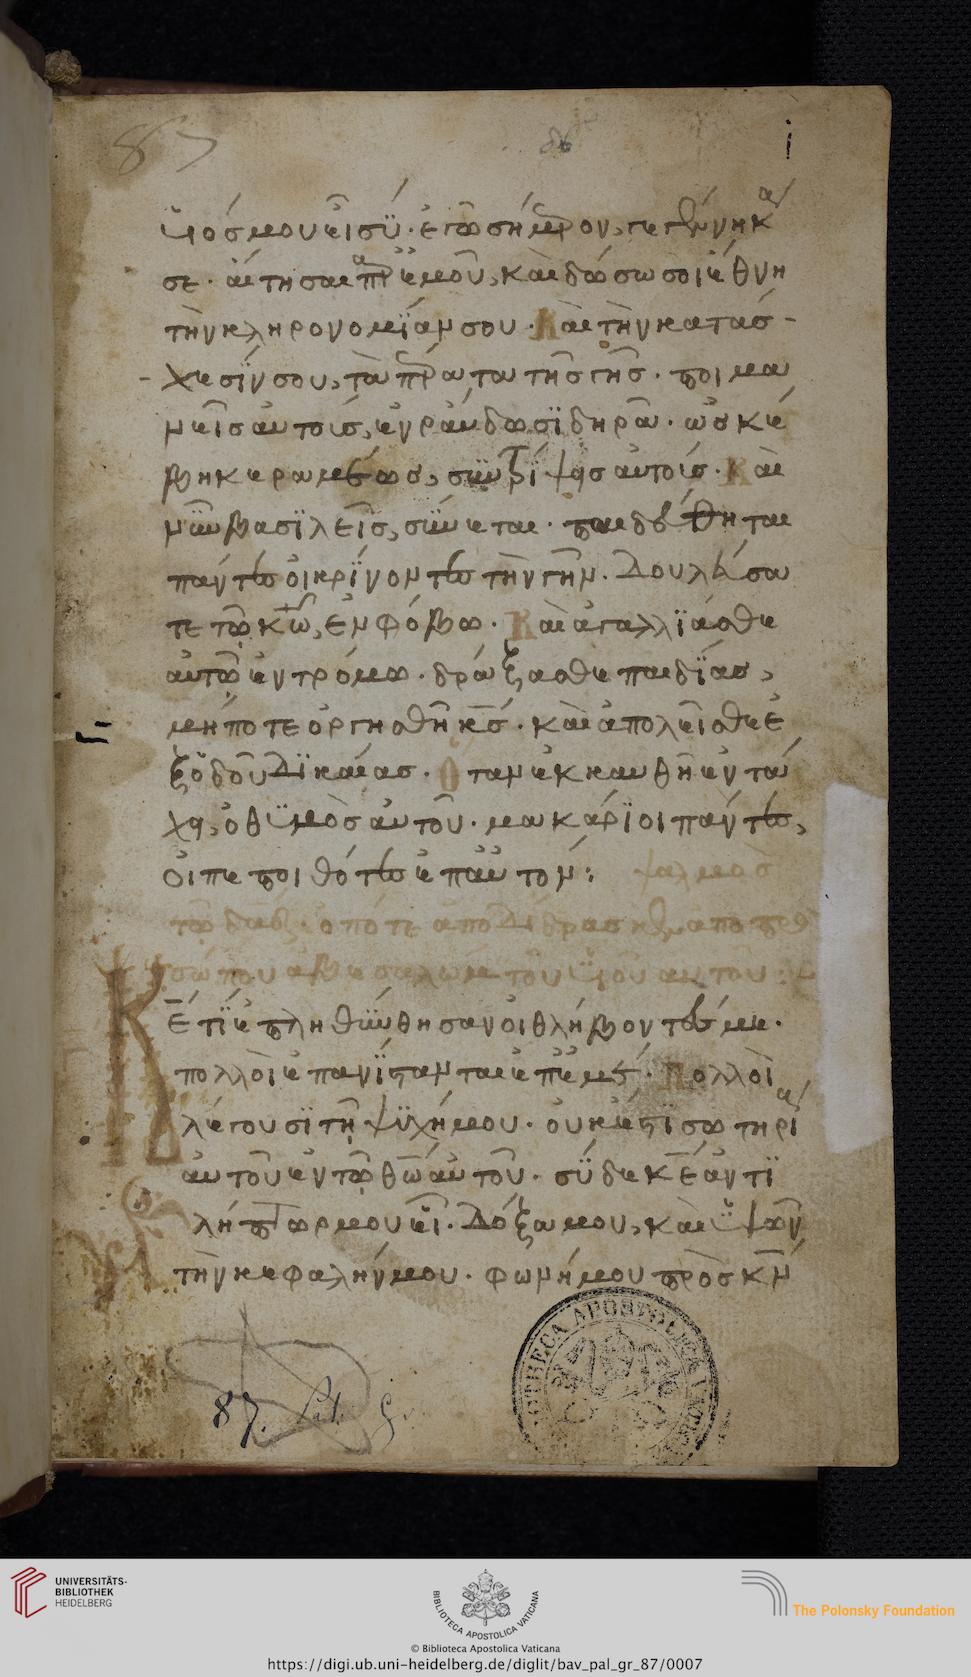 87
86
1
ὑιόσ μου εἶ σὺ· ἐγὼ σήμερον, γεγέννηκα
σε· αἴτησαι παρ ἐμοῦ, καὶ δώσω σοι ἔθνη
τὴν κληρονομΐαν σου· Καὶ τὴν κατάσ-
-χεσΐν σου, τὰ πέρατα τῆσ γῆσ· ποιμα
νεῖσ αὐτοὺσ, ἐν ράβδω σϊδηρᾶ· ὡσ σκέ
βη κεραμέωσ, σϋντρίψησ αὐτούσ· Καὶ
νῦν βασϊλεῖσ, σύνεται· παιδεύθηται
πάντεσ οἱ κρΐνοντεσ τὴν γῆν· Δουλεύσα
τε τῶ κω, ἐν φόβω· Καὶ ἀγαλλϊάσθε
αὐτῶ ἐν τρόμω· δράξασθε παιδΐασ,
μήποτε ὀργησθῆ κσ· καὶ ἀπολεῖσθε ἐ
ξ ὁδοῦ Δϊκαίασ· Οταν ἐκκαυθῆ ἐν τά
χη, ὁ θϋμὸσ αὐτοῦ· μακάρϊοι πάντεσ,
οἱ πεποιθότεσ ἐπ αὐτόν: ψαλμὸσ
τῶ δαδ· ὁπότε ἀπεδίδρασκεν ἀπο προ
σώπου ἀβεσαλὼμ τοῦ ὑιοῦ αυτοῦ:
Κ
Ε τΐ ἐπληθύνθησαν οἱ θλήβοντεσ με·
πολλοὶ ἐπανΐστανται ἐπ ἐμέ· Πολλοὶ
λέγουσϊ τῆ ψϋχῆ μου· οὐκ ἔστϊ σωτηρία
αὐτοῦ ἐν τῶ θω αὐτοῦ· σὺ δὲ κε ἀντϊ
λήπτωρ μου εἶ· Δόξα μου, καὶ ὑψῶν
τὴν κεφαλήν μου· φωνή μου πρὸσ κν
87.
UNIVERSITÄTS-
BIBLIOTHEK
HEIDELBERG
BIBLIOTECA APOSTOLICA VATICANA
The Polonsky Foundation
© Biblioteca Apostolica Vaticana
https://digi.ub.uni-heidelberg.de/diglit/bav_pal_gr_87/0007